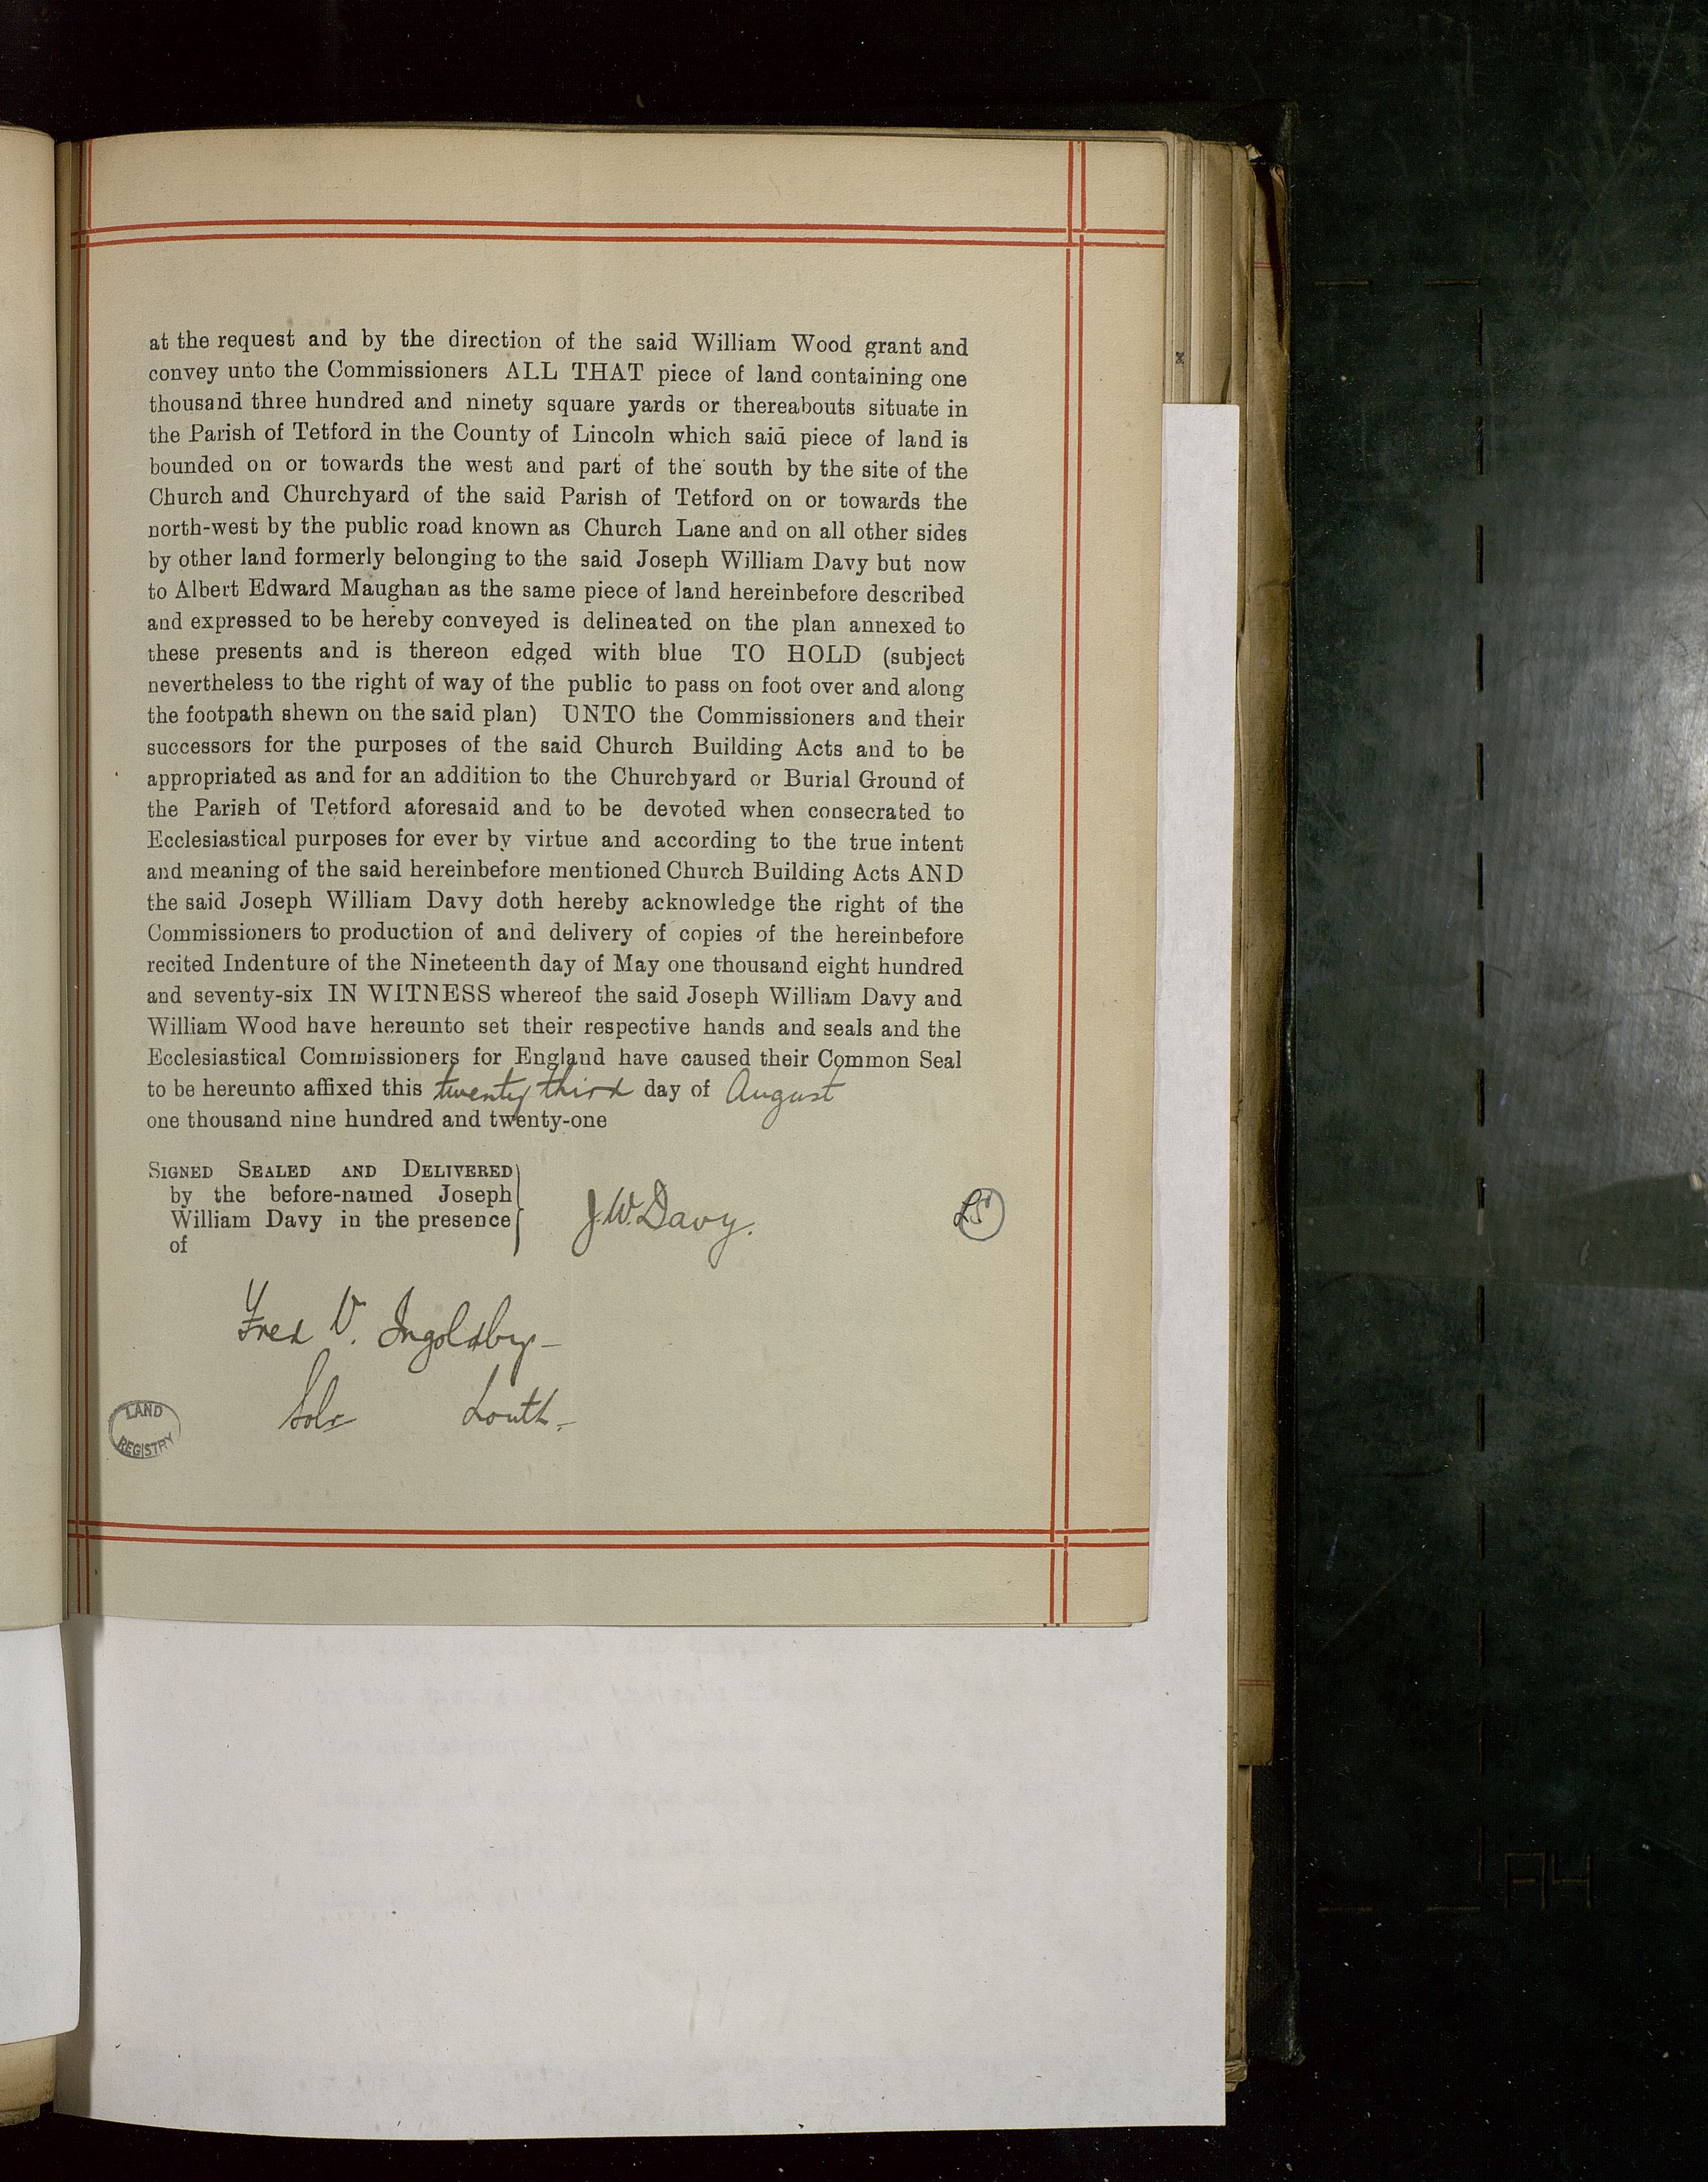 at the request and by the direction of the said William Wood grant and
convey unto the Commissioners ALL THAT piece of land containing one
thousand three hundred and ninety square yards or thereabouts situate in
the Parish of Tetford in the County of Lincoln which said piece of land is
bounded on or towards the west and part of the south by the site of the
Church and Churchyard of the said Parish of Tetford on or towards the
north-west by the public road known as Church Lane and on all other sides
by other land formerly belonging to the said Joseph William Davy but now
to Albert Edward Maughan as the same piece of land hereinbefore described
and expressed to be hereby conveyed is delineated on the plan annexed to
these presents and is thereon edged with blue TO HOLD (subject
nevertheless to the right of way of the public to pass on foot over and along
the footpath shewn on the said plan) UNTO the Commissioners and their
successors for the purposes of the said Church Building Acts and to be
appropriated as and for an addition to the Churchyard or Burial Ground of
the Parish of Tetford aforesaid and to be devoted when consecrated to
Ecclesiastical purposes for ever by virtue and according to the true intent
and meaning of the said hereinbefore mentioned Church Building Acts AND
the said Joseph William Davy doth hereby acknowledge the right of the
Commissioners to production of and delivery of copies of the hereinbefore
recited Indenture of the Nineteenth day of May one thousand eight hundred
and seventy-six IN WITNESS whereof the said Joseph William Davy and
William Wood have hereunto set their respective hands and seals and the
Ecclesiastical Commissioners for England have caused their Common Seal
to be hereunto affixed this twenty third day of August
one thousand nine hundred and twenty-one
SIGNED SEALED AND DELIVERED
by the before-named Joseph
William Davy in the presence
of
J. W. Davy.
LS
Fred V. Ingoldby
Solr Louth
LAND
REGISTRY
A4